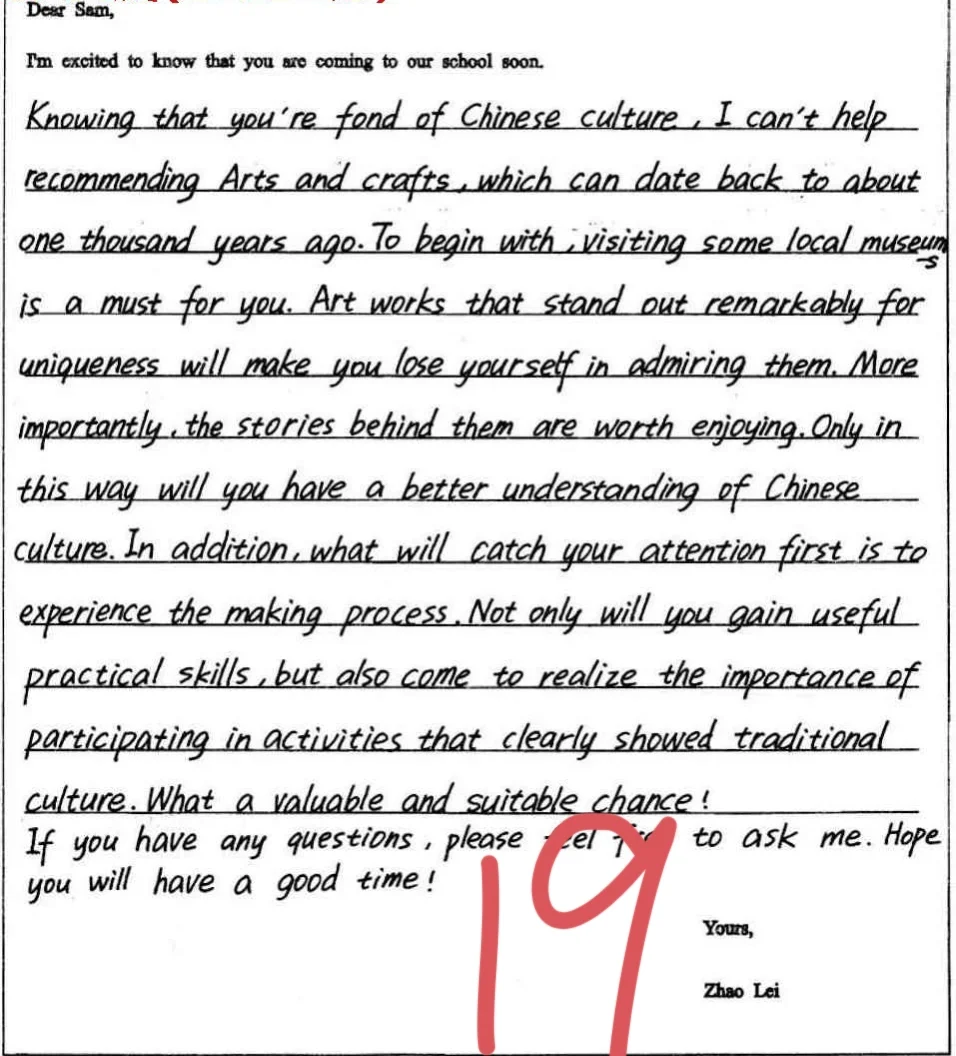 Dear Sam,
I'm excited to know that you are coming to our school soon.
Knowing that you're fond of Chinese culture, I can't help
recommending Arts and crafts, which can date back to about
one thousand years ago. To begin with, visiting some local museums
is a must for you. Art works that stand out remarkably for
uniqueness will make you lose yourself in admiring them. More
importantly, the stories behind them are worth enjoying. Only in
this way will you have a better understanding of Chinese
culture. In addition, what will catch your attention first is to
experience the making process. Not only will you gain useful
practical skills, but also come to realize the importance of
participating in activities that clearly showed traditional
culture. What a valuable and suitable chance!
If you have any questions, please feel to ask me. Hope
you will have a good time!
19
Yours,
Zhao Lei